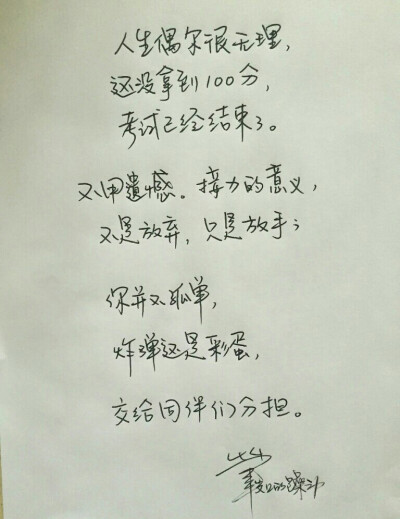 人生偶尔很无理，
还没拿到100分，
考试已经结束了。
不用遗憾。接力的意义，
不是放弃，只是放手；
你并不孤单，
炸弹还是彩蛋，
交给同伴们分担。